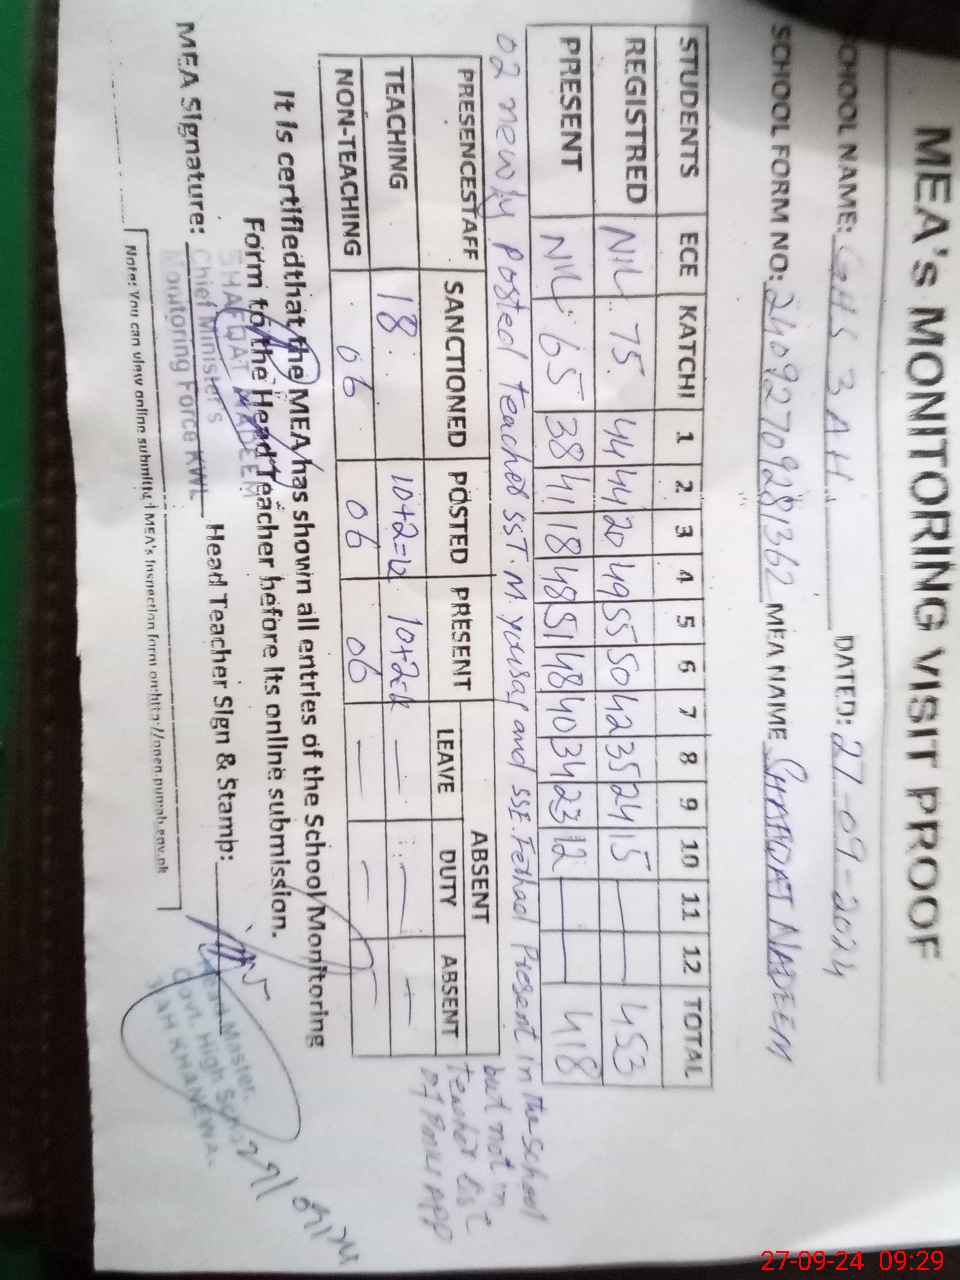 MEA's MONITORING VISIT PROOF
SCHOOL NAME: GHS 3 AH DATED: 27-09-2024
SCHOOL FORM NO: 24092709281362 MEA NAME SHAFQAT NADEEM
STUDENTS ECE KATCHI 1 2 3 4 5 6 7 8 9 10 11 12 TOTAL
REGISTRED NIL 75 44 44 20 49 55 50 42 35 24 15 — — 453
PRESENT NIL 65 38 41 18 48 51 48 40 34 23 12 — — 418
02 newly posted teacher SST. M. yousaf and SSE. Farhad Present in the school
but not in
teacher list
of PMIU APP
PRESENCESTAFF SANCTIONED POSTED PRESENT ABSENT
LEAVE DUTY ABSENT
TEACHING 18 10+2=12 10+2=12 — — —
NON-TEACHING 06 06 06 — — —
It is certifiedthat the MEA has shown all entries of the School Monitoring
Form to the Head Teacher before its online submission.
SHAFQAT NADEEM
Chief Minister's
Monitoring Force KWL
MEA Signature: Head Teacher Sign & Stamb:
Head Master.
Govt. High School
3 AH KHANEWAL.
Note: You can view online submitted MEA's inspection form on:http://open.pumab.gov.pk
27-09-24 09:29